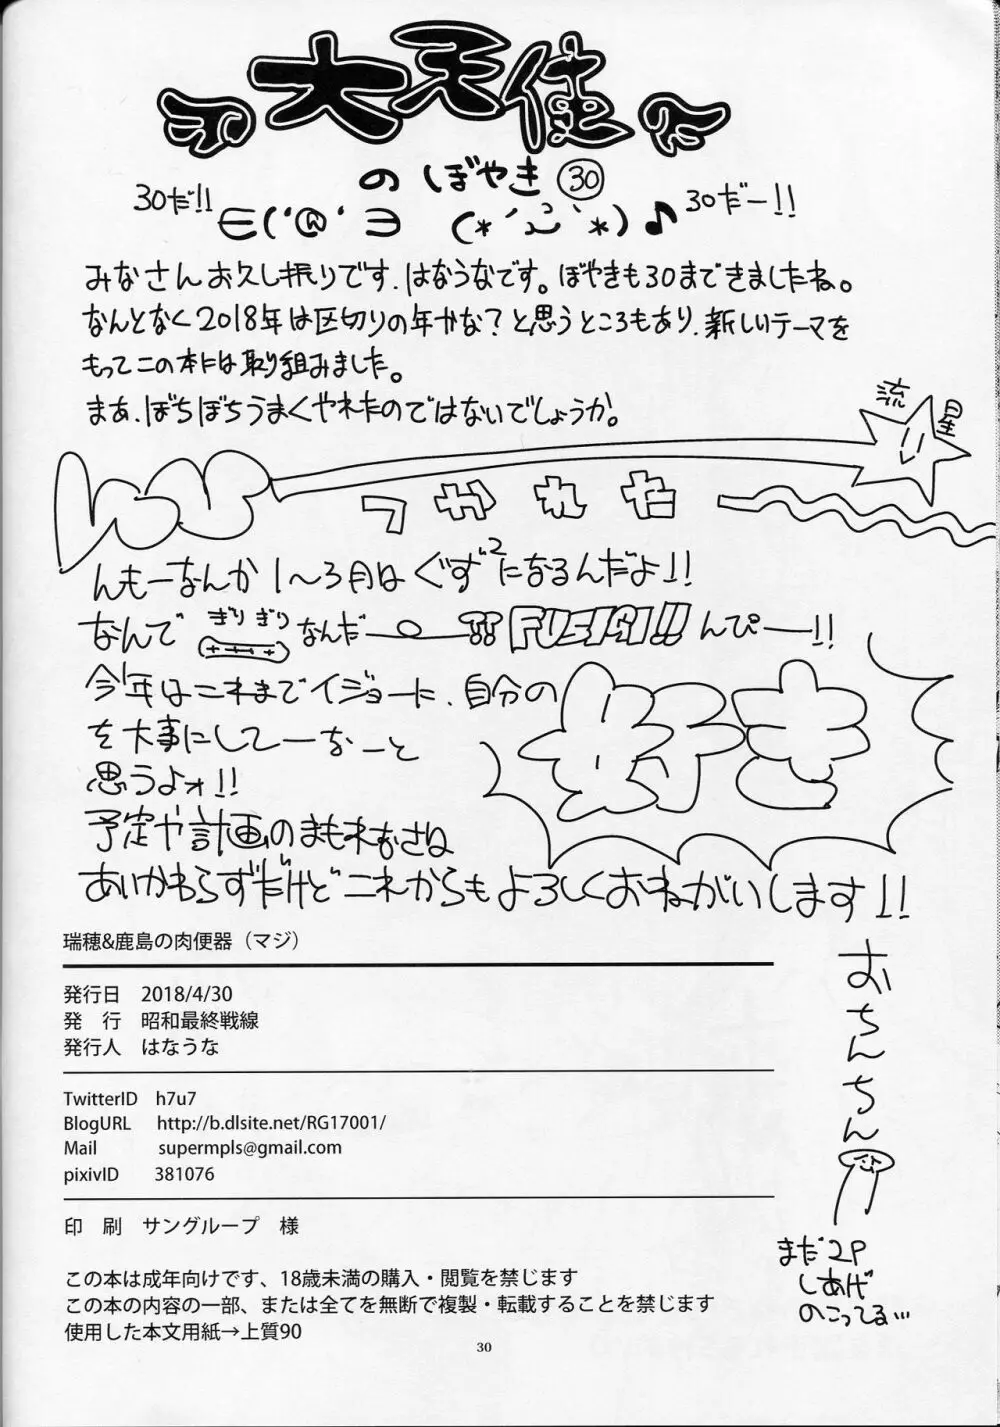 大天使
のぼやき㉚
30だ!! ∈('@'∋ (*´ω`*)♪ 30だー!!
みなさんお久し振りです、はなうなです。ぼやきも30まできましたね。
なんとなく2018年は区切りの年かな?と思うところもあり、新しいテーマを
もってこの本には取り組みました。
まあ、ぼちぼちうまくやれたのではないでしょうか。
流星
つかれた
んもーなんか1〜3月はぐず²になるんだよ!!
なんでぎりぎりなんだー
FUSIAI!! んぴー!!
今年はこれまでイジョーに、自分の
好き
を大事にしてーなーと
思うよォ!!
予定や計画のまもれなさね
あいかわらずだけどこれからもよろしくおねがいします!!
瑞穂&鹿島の肉便器(マジ)
発行日 2018/4/30
発 行 昭和最終戦線
発行人 はなうな
TwitterID h7u7
BlogURL http://b.dlsite.net/RG17001/
Mail supermpls@gmail.com
pixivID 381076
印 刷 サングループ 様
この本は成年向けです、18歳未満の購入・閲覧を禁じます
この本の内容の一部、または全てを無断で複製・転載することを禁じます
使用した本文用紙→上質90
おちんちん
まだ2P
しあげ
のこってる…
30